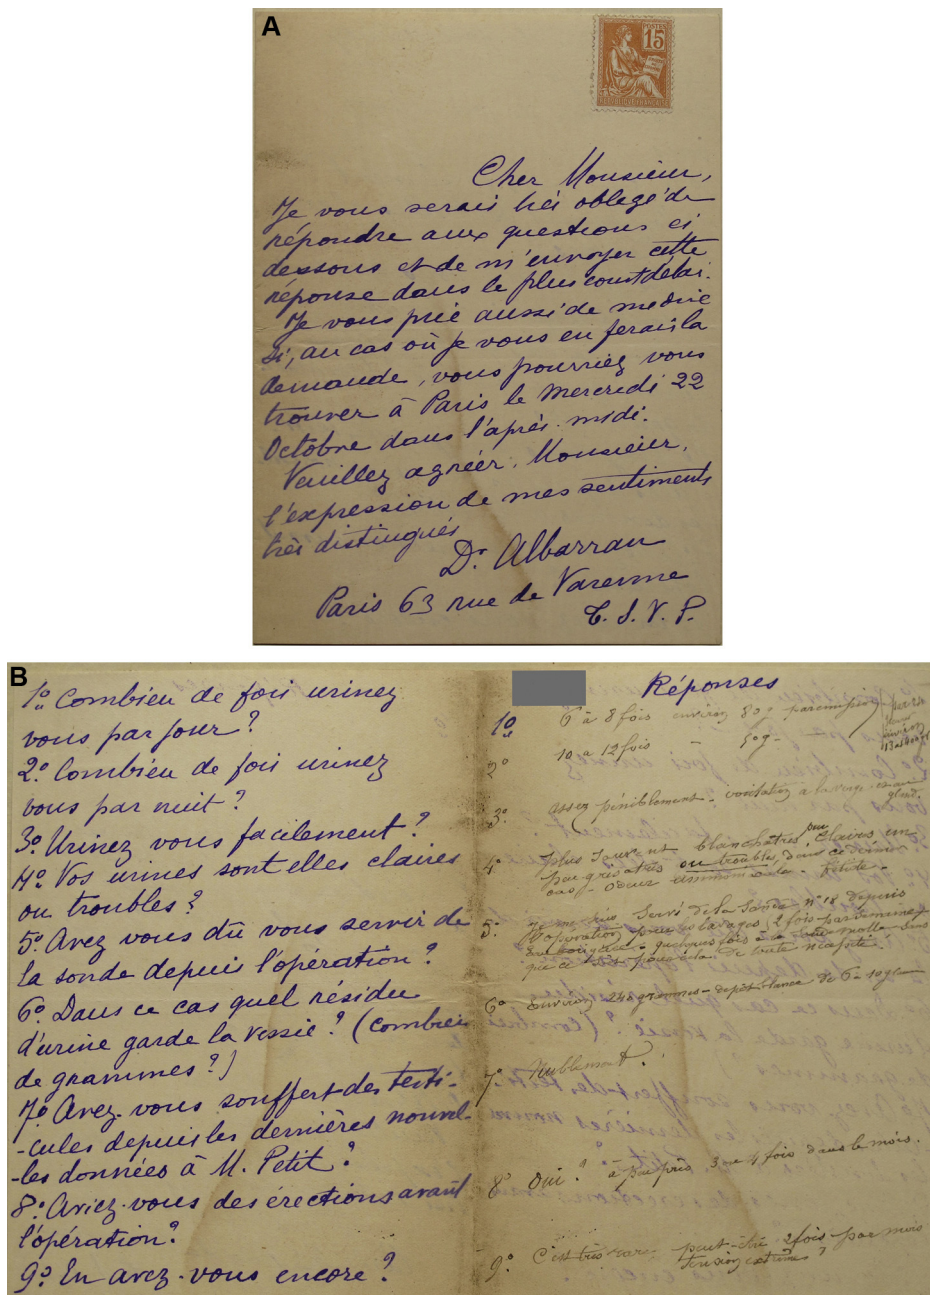 A
POSTES
15
REPUBLIQUE FRANÇAISE
Cher Monsieur,
Je vous serais très obligé de
répondre aux questions ci
dessous et de m'envoyer cette
réponse dans le plus court délai.
Je vous prie aussi de me dire
si, au cas où je vous en ferais la
demande, vous pourriez vous
trouver à Paris le Mercredi 22
Octobre dans l'après-midi.
Veuillez agréer, Monsieur,
l'expression de mes sentiments
très distingués
Dr. Albarran
Paris 63 rue de Varenne
T. S. V. P.
B
1o Combien de fois urinez
vous par jour?
2o Combien de fois urinez
vous par nuit?
3o Urinez vous facilement?
4o Vos urines sont elles claires
ou troubles?
5o Avez vous dû vous servir de
la sonde depuis l'opération?
6o Dans ce cas quel résidu
d'urine garde la vessie? (combien
de grammes?)
7o Avez-vous souffert des testi-
-cules depuis les dernières nouvel-
-les données à M. Petit?
8o Aviez-vous des érections avant
l'opération?
9o En avez-vous encore?
Réponses
1o 6 à 8 fois environ 80g par
2o 10 a 12 fois - 50g-
3o assez péniblement - a la verge
gland.
4o plus souvent blanchâtres, peu claires un
peu grisatres ou troubles, dans ce
cas - odeur
5o Je me suis servi de la sonde no 18 depuis
l'opération pour les lavages, 2 fois par semaine
quelques fois
que
6o Environ 240 grammes - de 6 a 10g
7o Nullement.
8o Oui? à peu près 3 ou 4 fois dans le mois.
9o C'est très rare - peut-être 2 fois par mois